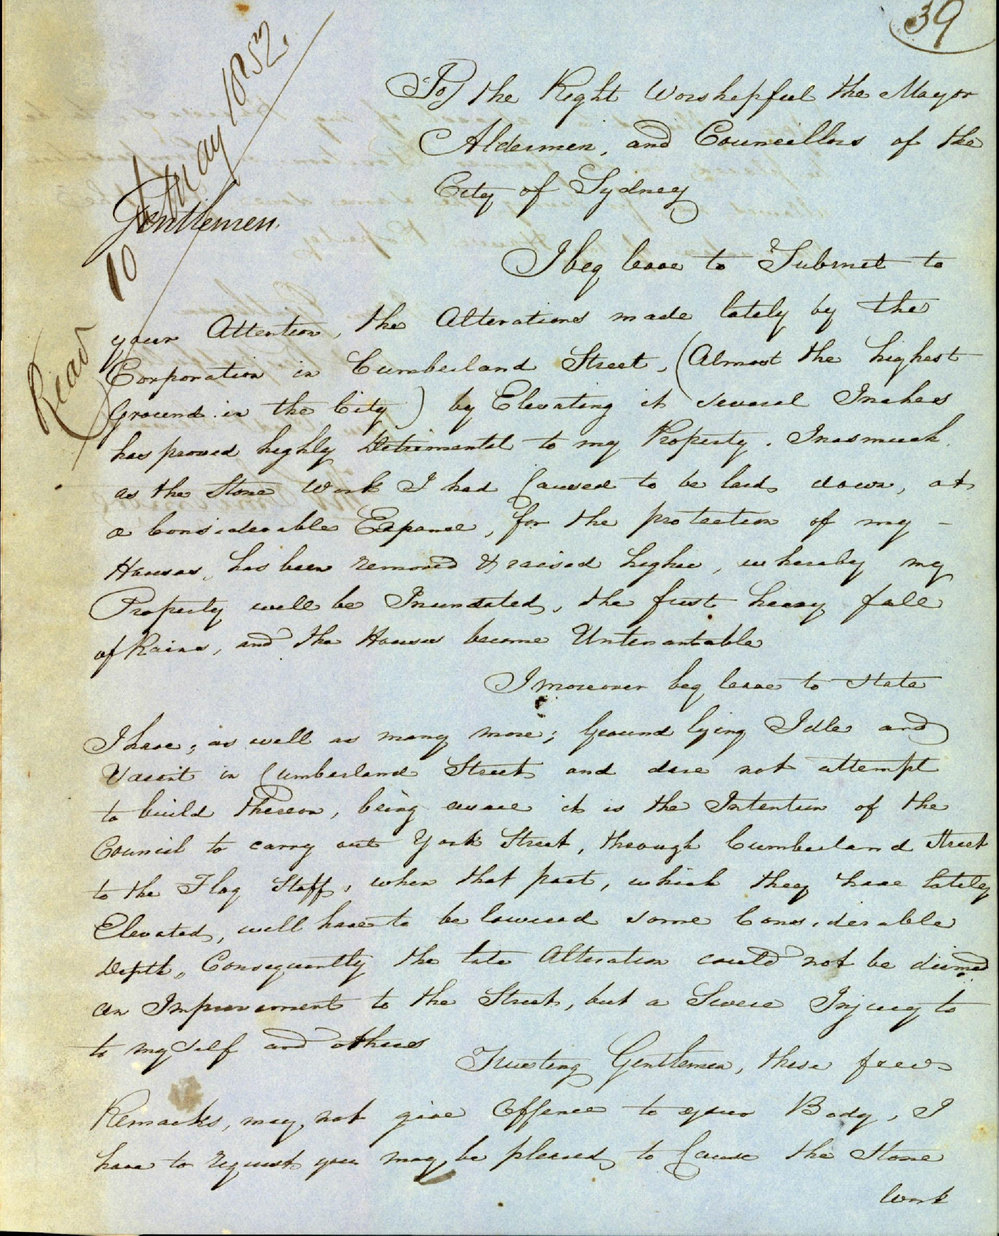 39
To the Right Worshipful the Mayor
Aldermen, and Councillors of the
City of Sydney
Read 10 May 1852.
Gentlemen.
I beg leave to Submit to
your Attention, the Alterations made lately by the
Corporation in Cumberland Street, (Almost the highest
Ground in the City) by Elevating it several Inches
has proved highly Detrimental to my Property. Inasmuch
as the Stone Work I had Caused to be laid down, at
a Considerable Expence, for the protection of my -
Houses, has been removed & raised higher, whereby my
Property will be Inundated, the first heavy fall
of Rains, and the Houses become Untenantable
I moreover beg leave to state
I have, as well as many more; Ground lying Idle and
Vacant in Cumberland Street and dare not attempt
to build thereon, being aware it is the Intention of the
Council to carry out York Street, through Cumberland Street
to the Flag Staff, when that part, which they have lately
Elevated, will have to be lowered some Considerable
Depth, Consequently the late Alteration could not be deemed
an Improvement to the Street, but a Severe Injury to
to myself and others
Trusting Gentlemen, these few
Remarks, may not give Offence to your Body, I
have to request you may be pleased to Cause the Stone
Work